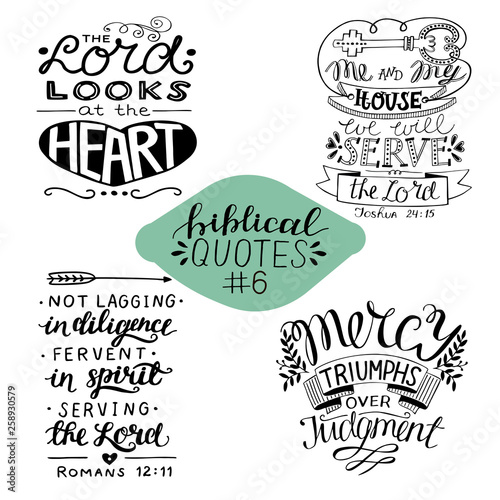 THE
Lord
LOOKS
at the
HEART
Me AND My
HOUSE
we will
SERVE
the Lord
Joshua 24:15
biblical
QUOTES
#6
· NOT LAGGING ·
in diligence
· FERVENT ·
in spirit
· SERVING ·
the Lord
ROMANS 12:11
Mercy
TRIUMPHS
OVER
Judgment
Adobe Stock | #258930579